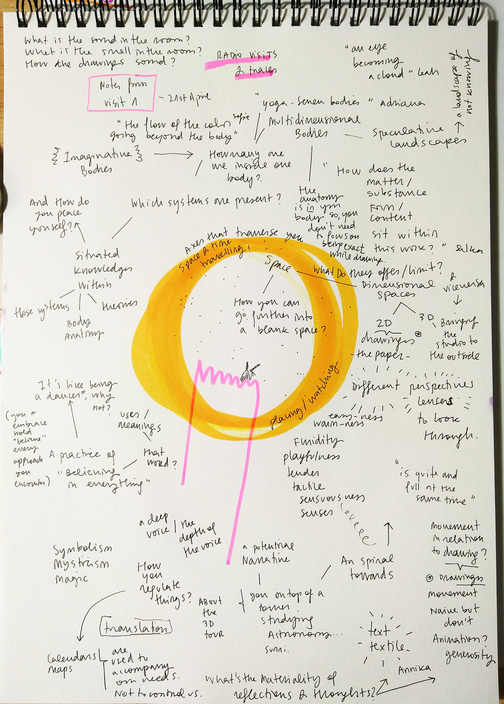 What is the sound in the room?
What is the smell in the room?
How the drawings sound?
RADIO VISITS
& traces
"an eye
becoming
a cloud" leah
a landscape of
not knowing
Notes from
visit 1
21st April
"yoga-seven bodies" Adriana
"the flow of the color
going beyond the body"
Multidimensional
Bodies
Speculative
landscapes
{Imaginative}
Bodies
How many one
we inside one
body?
"How does the
matter/
substance
Form/
content
sit within
this work?"
the
anatomy
is in your
body so, you
don't need
to focus on
being exact
while drawing
And How do
you place
yourself?
which systems are present?
Axes that traverse you
Space & time
travelling!
Space
What Do they offer/limit?
Dimensional
spaces
& viceversa
Situated
knowledges
within
those systems
theories
Body
anatomy
How you can
go further into
a blank space?
2D
drawings
the paper
3D
Bringing
the
studio to
the outside
Different perspectives
lenses
to look
through.
placing/watching
"It's like being
a dancer", why
not?
(you
embrace
hold
"believe"
every
approach
you
encounter)
uses/
meanings
A practice of
"Believing
in everything"
that word?
easy-ness
warm-ness
Fluidity
playfulness
tender
tactile
sensuousness
senses
"is quite and
full at the
same time"
a deep
voice / the
depth of
the voice
Symbolism
Mysticism
Magic
How
you
regulate
things?
a potential
Narrative
An spiral
towards
movement
in relation
to drawing?
drawings
movement
Naive but
don't
Animation?
generosity
About
the
3D
tour
you on top of a
tower
studying
Astronomy...
translation
Calendars
maps
are
used to
accompany
our needs.
Not to control us.
text
textile.
Annika
What's the materiality of
reflections & thoughts?